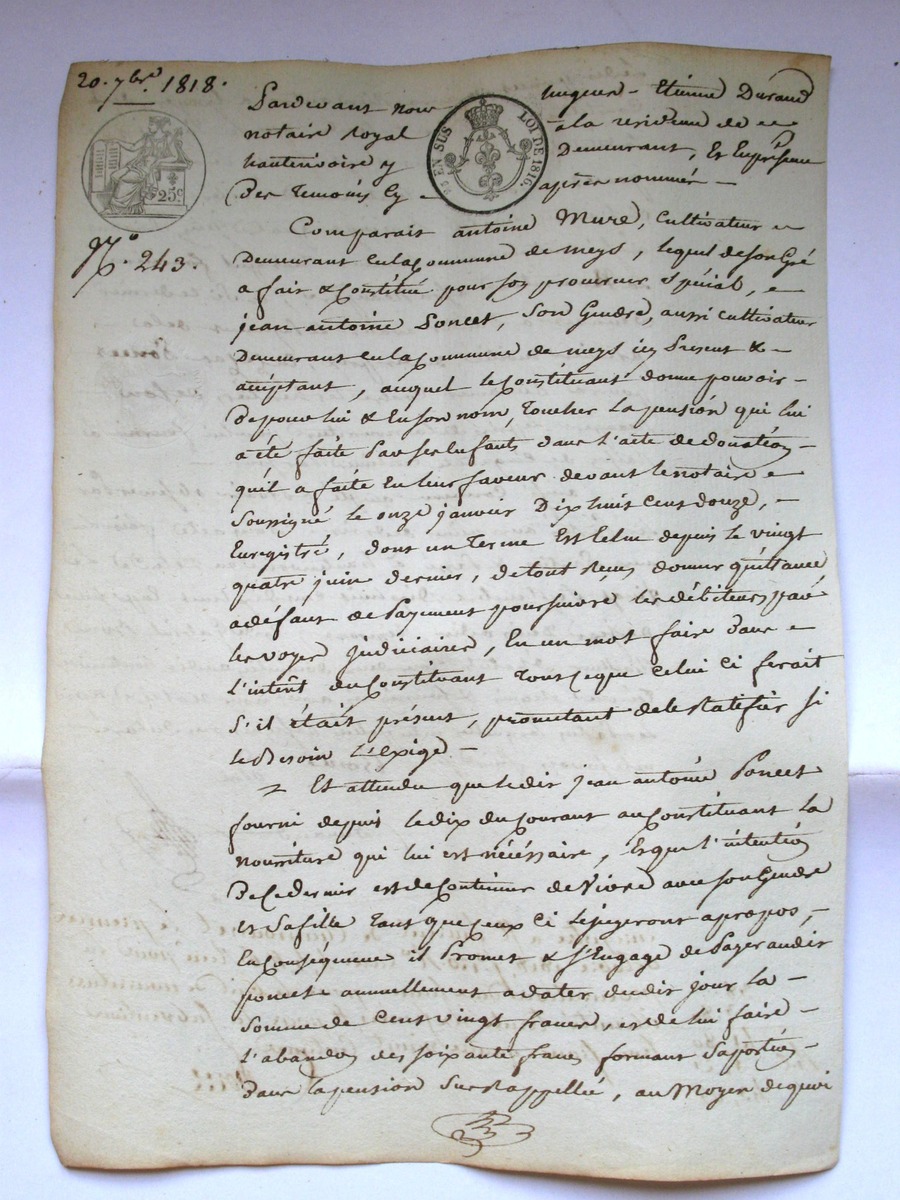 20. 7bre. 1818.
Pardevant nous hugues - Etienne Durand
notaire royal à la residence de
hauterivoire y Demeurant, Et En présence
Des Temoins Cy - après nommés -
EN SUS LOI DE 1816.
25c
No. 243.
Comparait antoine Mure, Cultivateur
Demeurant En la Commune de meys, lequel de son Gré
a fait & Constitué pour son procureur Spécial,
jean antoine Poncet, Son Gendre, aussi Cultivateur
Demeurant En la Commune de meys icy Present & -
acceptant, auquel le Constituant donne pouvoir -
De pour lui & En son nom, Toucher la pension qui lui
a été faite Par ses Enfants dans l'acte de donation -
qu'il a faite En leur faveur devant le notaire
Soussigné le onze janvier Dix huit Cent douze, -
Enregistré, dont un Terme Est Echu depuis le vingt
quatre juin dernier, de tout Reçu donner quittance
a défaut de Payement poursuivre les débiteurs par
les voyes judiciaires, En un mot faire Dans
L'interêt du Constituant Tous ce que celui ci ferait
S'il était présent, prometant de le Ratifier si
le Besoin L'éxige -
Et attendu que ledit jean antoine Poncet
fourni depuis le dix du Courant au Constituant la
nourriture qui lui est nécéssaire, Et que l'intention
De Ce dernier est de Continuer de Vivre avec son Gendre
et Sa fille Tant que Ceux Ci le jugeront apropos, -
En Conséquence il Promet & S'Engage de Payer audit
Poncet annuellement a dater dudit jour la -
Somme de Cent vingt francs, et de lui faire -
L'abandon des soixante francs formant Sa portion -
Dans la pension Sus Rappellée, au Moyen de quoi